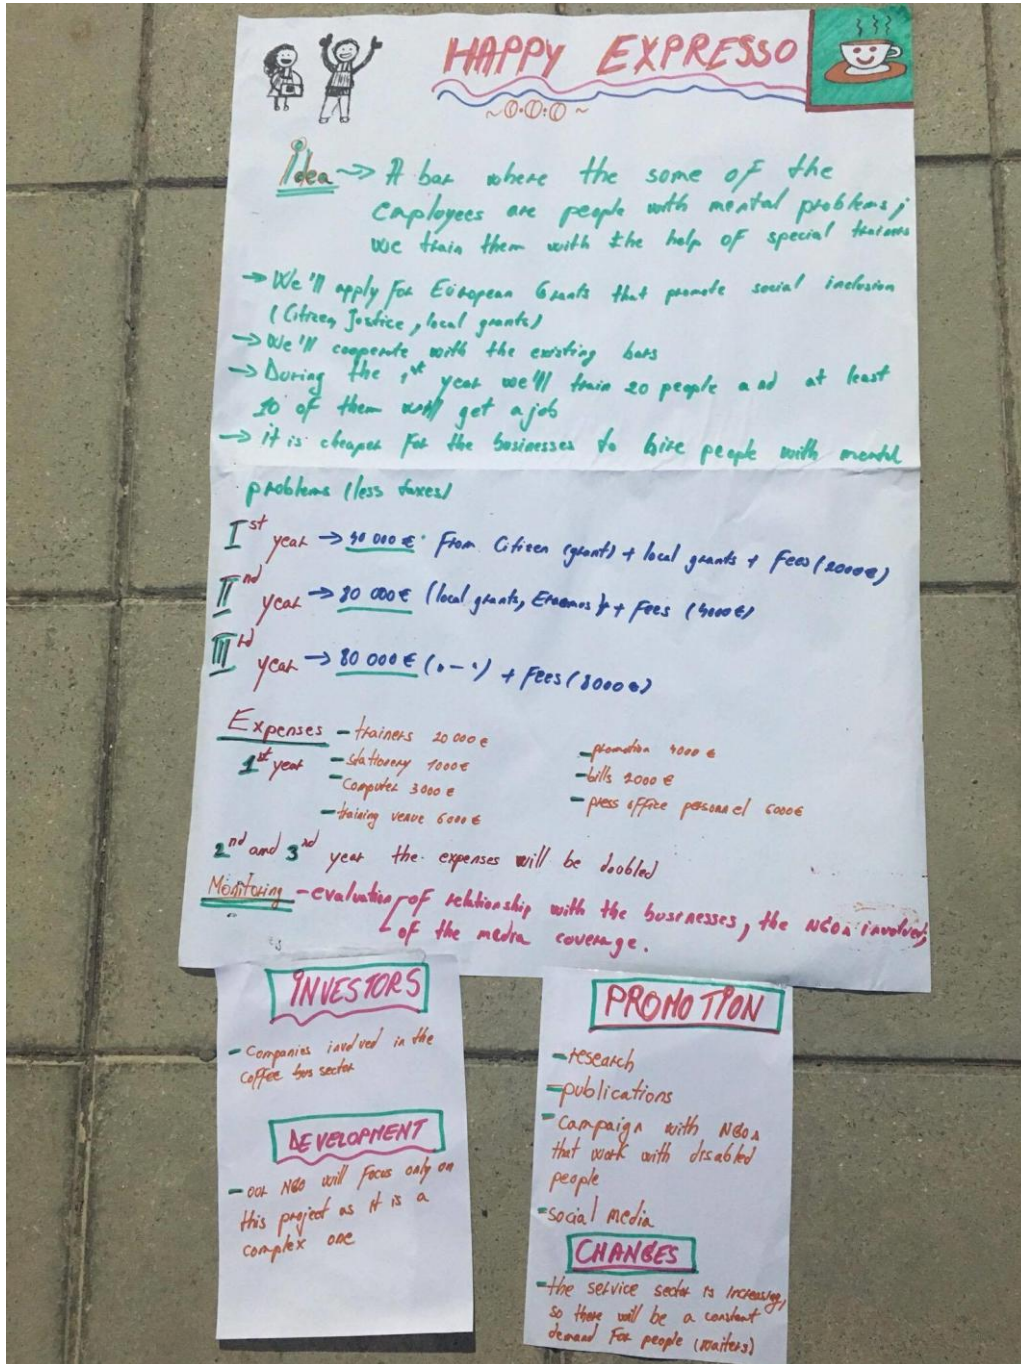 HAPPY EXPRESSO
Idea → A bar where the some of the
employees are people with mental problems;
we train them with the help of special trainers
→ We'll apply for European Grants that promote social inclusion
(Citizen, Justice, local grants)
→ We'll cooperate with the existing bars
→ During the 1st year we'll train 20 people and at least
10 of them will get a job
→ it is cheaper for the businesses to hire people with mental
problems (less taxes)
Ist year → 40 000 € from Citizen (grant) + local grants + Fees (2000€)
IInd year → 80 000 € (local grants, Erasmus) + Fees (4000€)
IIIrd year → 80 000 € (〃 — 〃) + Fees (8000€)
Expenses
1st year
- trainers 20 000 €
- stationery 1000 €
- computer 3000 €
- training venue 6000 €
- promotion 4000 €
- bills 2000 €
- press office personnel 6000€
2nd and 3rd year the expenses will be doobled
Monitoring - evaluation of relationship with the businesses, the NGOs involved;
of the media coverage.
INVESTORS
- Companies involved in the
coffee bus sector
DEVELOPMENT
- our NGO will focus only on
this project as it is a
complex one
PROMOTION
- research
- publications
- campaign with NGOs
that work with disabled
people
- social media
CHANGES
- the service sector is increasing,
so there will be a constant
demand for people (waiters)